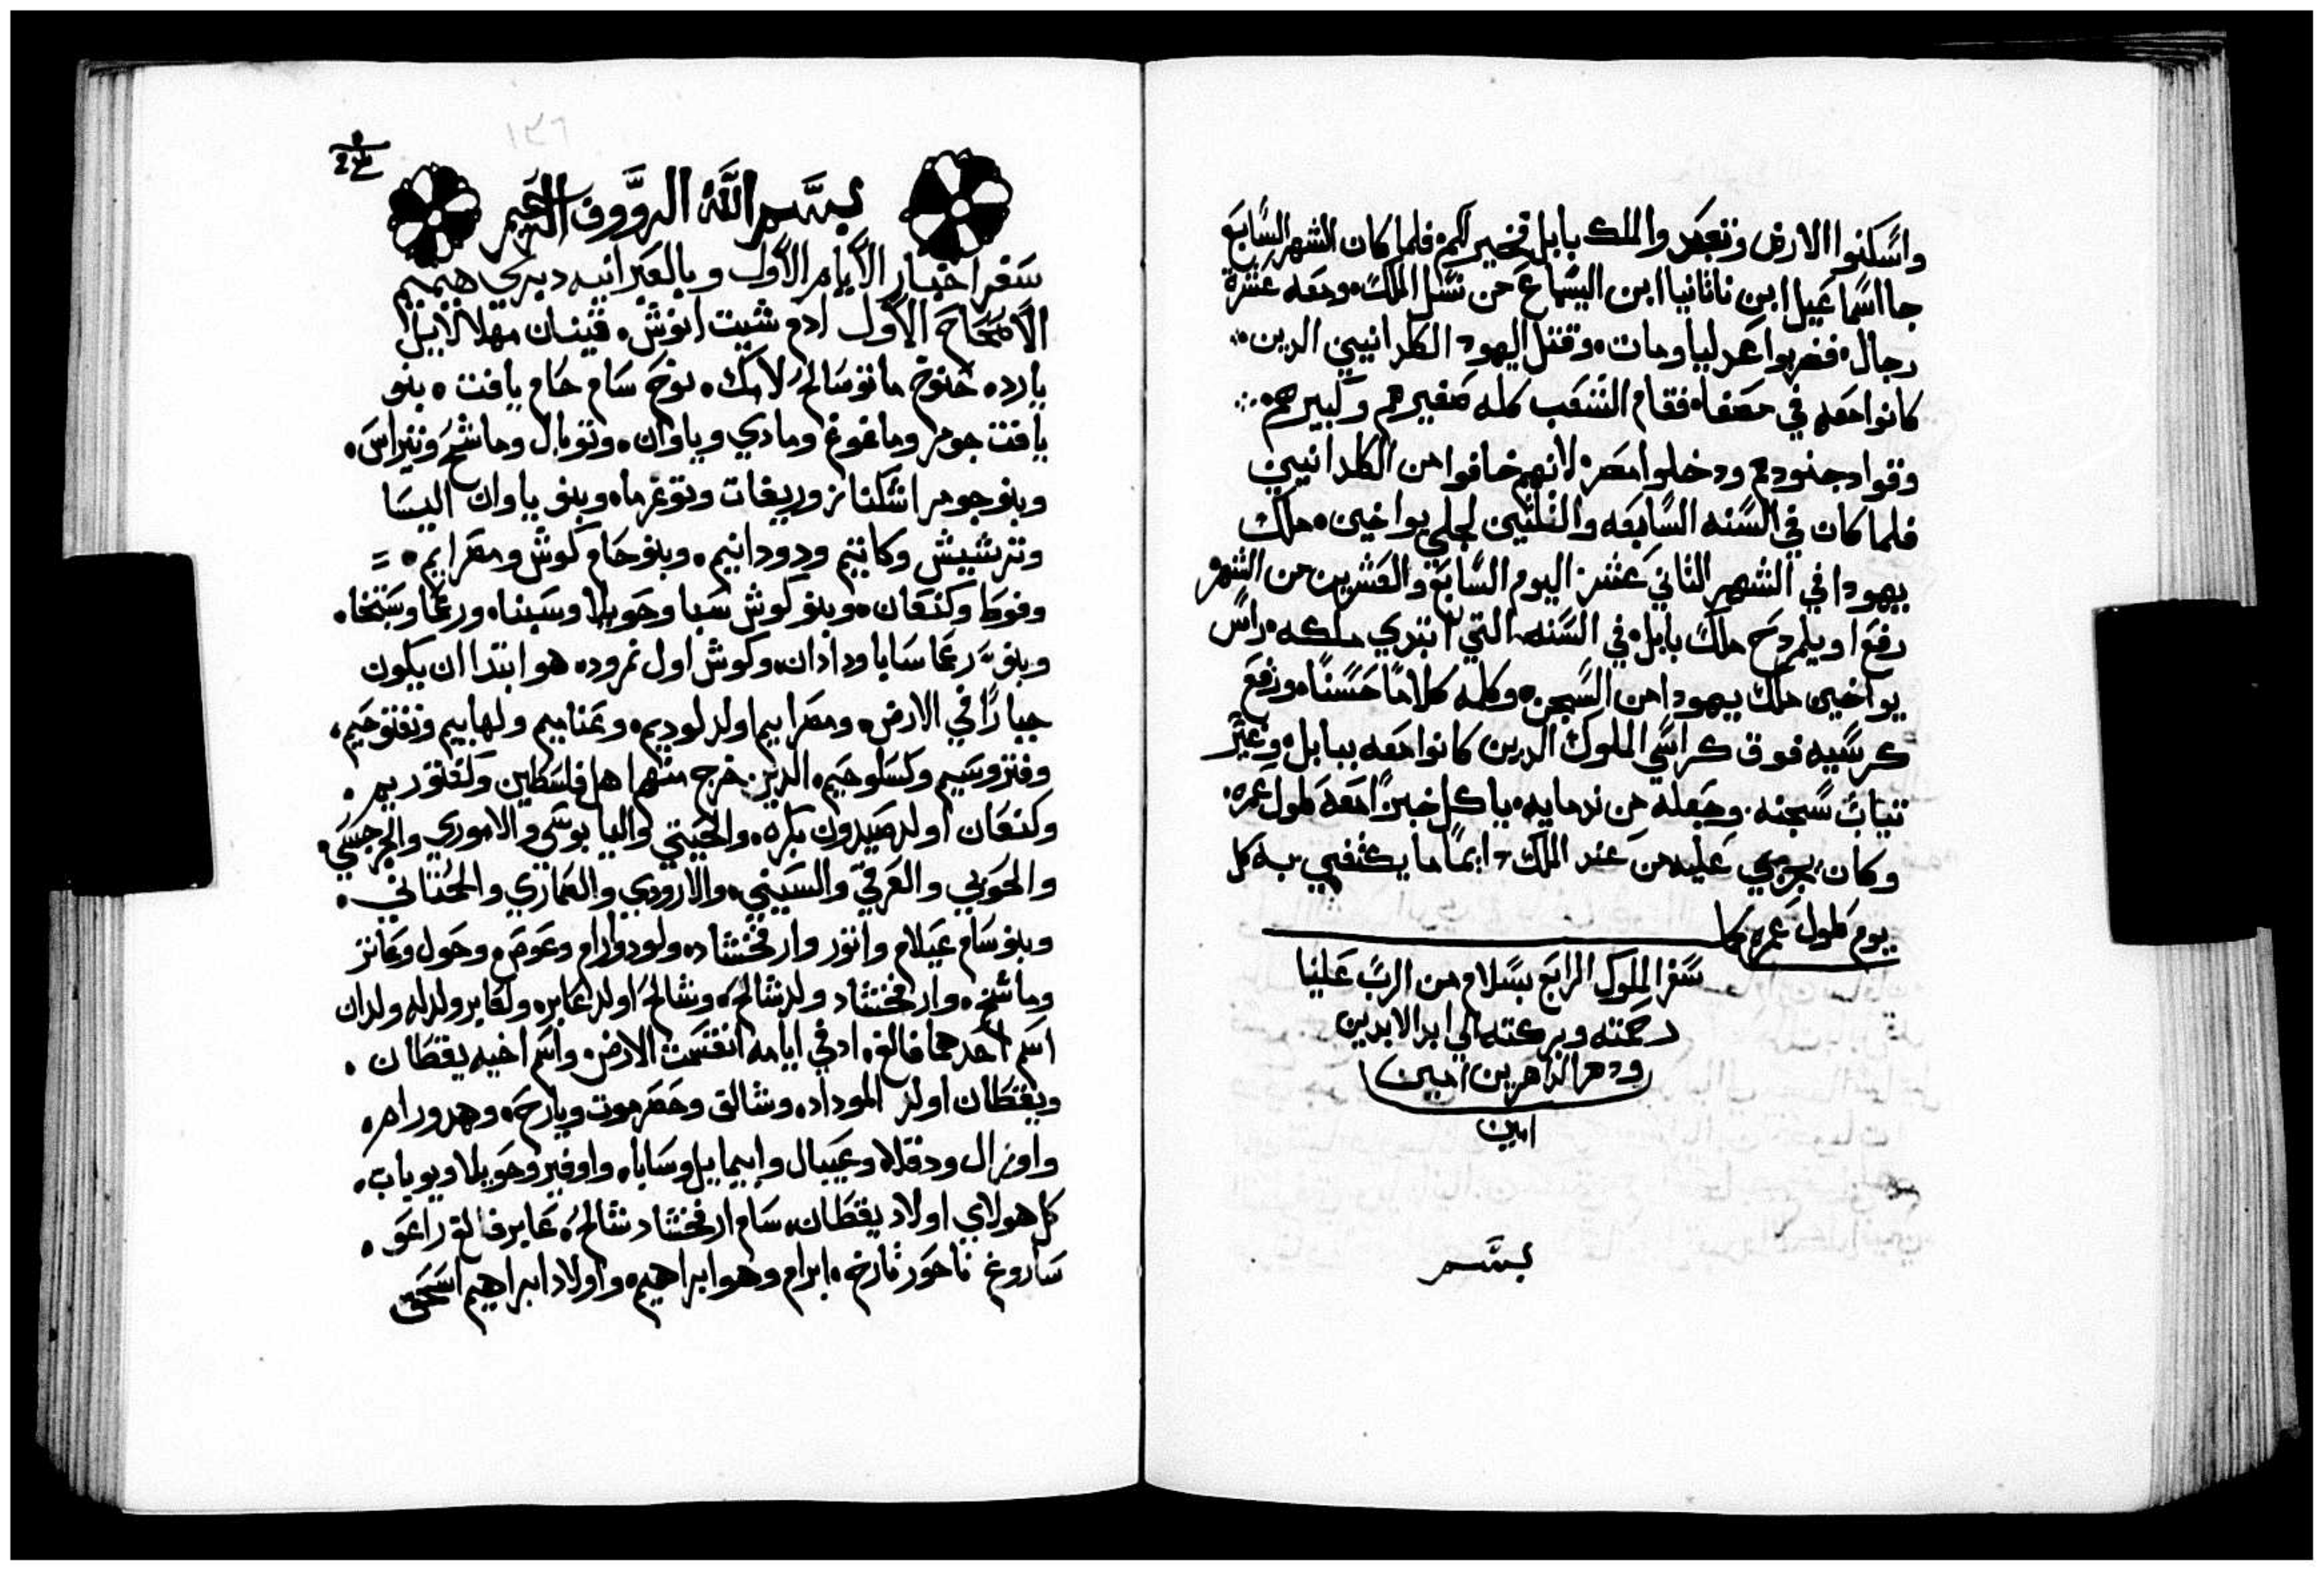 واسكنوا الارض وتعبدوا لملك بابل فخير لكم فلما كان الشهر السابع
جا اسماعيل ابن ناثانيا ابن اليشماع من نسل الملك ومعه عشرة
رجال فضربوا عدليا ومات وقتل اليهود الكلدانيين الدين
كانوا معه في مصفا فقام الشعب كله صغيرهم وكبيرهم
وقواد جنودهم ودخلوا مصر لانهم خافوا من الكلدانيين
فلما كان في السنه السابعه والثلثين لجلي يواخين ملك
يهودا في الشهر الثاني عشر اليوم السابع والعشرين من الشهر
رفع اويلمردخ ملك بابل في السنه التي ابتدي ملكه راس
يواخين ملك يهودا من السجن وكلمه كلاما حسنا ورفع
كرسيه فوق كراسي الملوك الدين كانوا معه ببابل وغير
تياب سجنه وجعله من ندمايه ياكل خبزا معه طول عمره
وكان يجري عليه من عند الملك دايما ما يكتفي به كل
يوم طول عمره كما
سفر الملوك الرابع بسلام من الرب علينا
رحمته وبركته الي ابد الابدين
ودهر الداهرين امين
امين
بسم
١٣٦
بسم الله الرووف الرحيم
سفر اخبار الايام الاول وبالعبرانيه دبري هيميم
الاصحاح الاول ادم شيت انوش قينان مهلالاييل
يارد خنوخ ماتوسالح لامك نوح سام حام يافت بنو
يافت جومر وماغوغ ومادي وياوان وتوبال وماشخ وتيراس
وبنو جومر اشكناز وريفات وتوغرما وبنو ياوان اليسا
وترشيش وكاتيم ودودانيم وبنو حام كوش ومصرايم
وفوط وكنعان وبنو كوش سبا وحويلا وسبتا ورعما وسبتخا
وبنو رعما سابا ودادان وكوش اول نمرود هو ابتدا ان يكون
جبارا في الارض ومصراييم اولد لوديم وعناميم ولهابيم ونفتوحيم
وفتروسيم وكسلوحيم الدين خرج منهم اهل فلسطين وكفتوريم
وكنعان اولد صيدون بكره والحيتي واليابوسي والاموري والجرجسي
والحوي والعرقي والسيني والارودي والصماري والحماتي
وبنو سام عيلام واتور وارفخشاد ولود وارام وعوص وحول وعاتز
وماشخ وارفخشاد ولد شالح وشالح اولد عابر ولعابر ولد له ولدان
اسم احدهما فالغ اد في ايامه انقسمت الارض واسم اخيه يقطان
ويقطان اولد الموداد وشالف وحضرموت ويارح وهدورام
واوزال ودقلا وعيبال وابيماييل وسابا واوفير وحويلا ويوباب
كل هولاي اولاد يقطان سام ارفخشاد شالح عابر فالغ راعو
ساروغ ناحور تارخ ابرام وهو ابراهيم واولاد ابراهيم اسحق